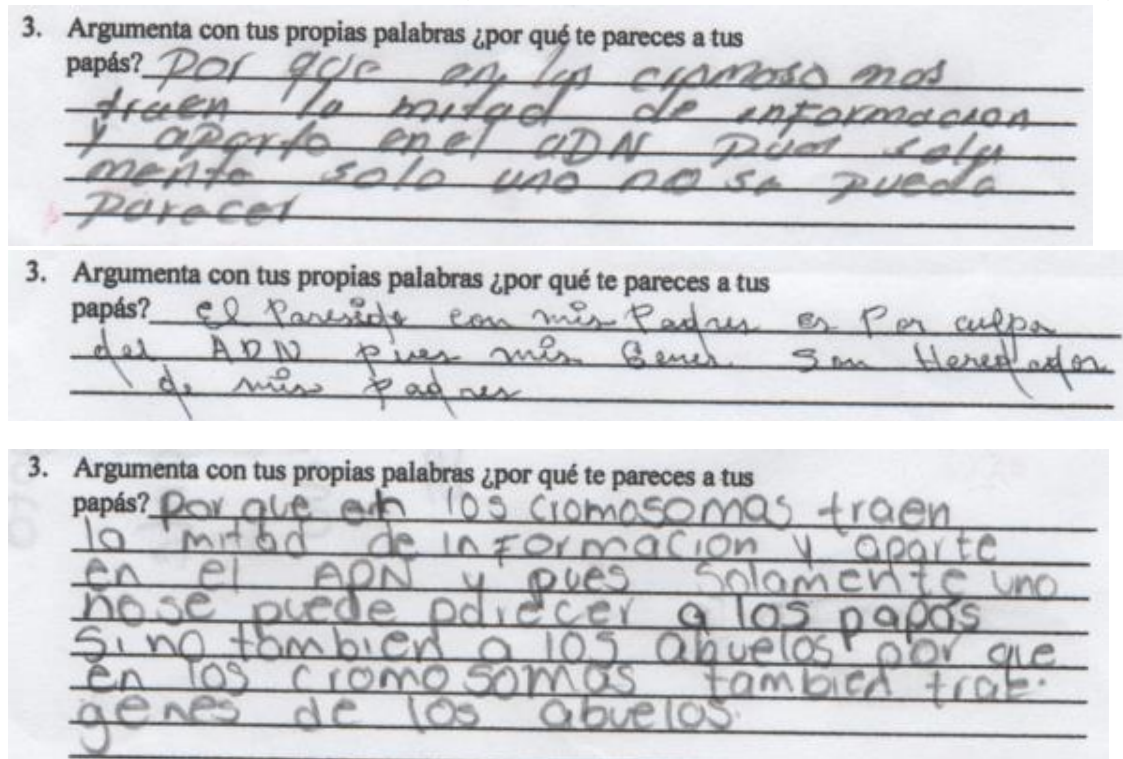 3. Argumenta con tus propias palabras ¿por qué te pareces a tus
papás? por que en los cromoso mos
traen la mitad de informacion
y aparte en el ADN pues sola
mente solo uno no se puede
parecer
3. Argumenta con tus propias palabras ¿por qué te pareces a tus
papás? el Pareside con mis Padres es Por culpa
del ADN pues mis Genes Son Heredados
de mis padres
3. Argumenta con tus propias palabras ¿por qué te pareces a tus
papás? Por que en los cromosomas traen
la mitad de informacion y aparte
en el ADN y pues solamente uno
no se puede parecer a los papás
si no tambien a los abuelos por que
en los cromosomas tambien trae.
genes de los abuelos.